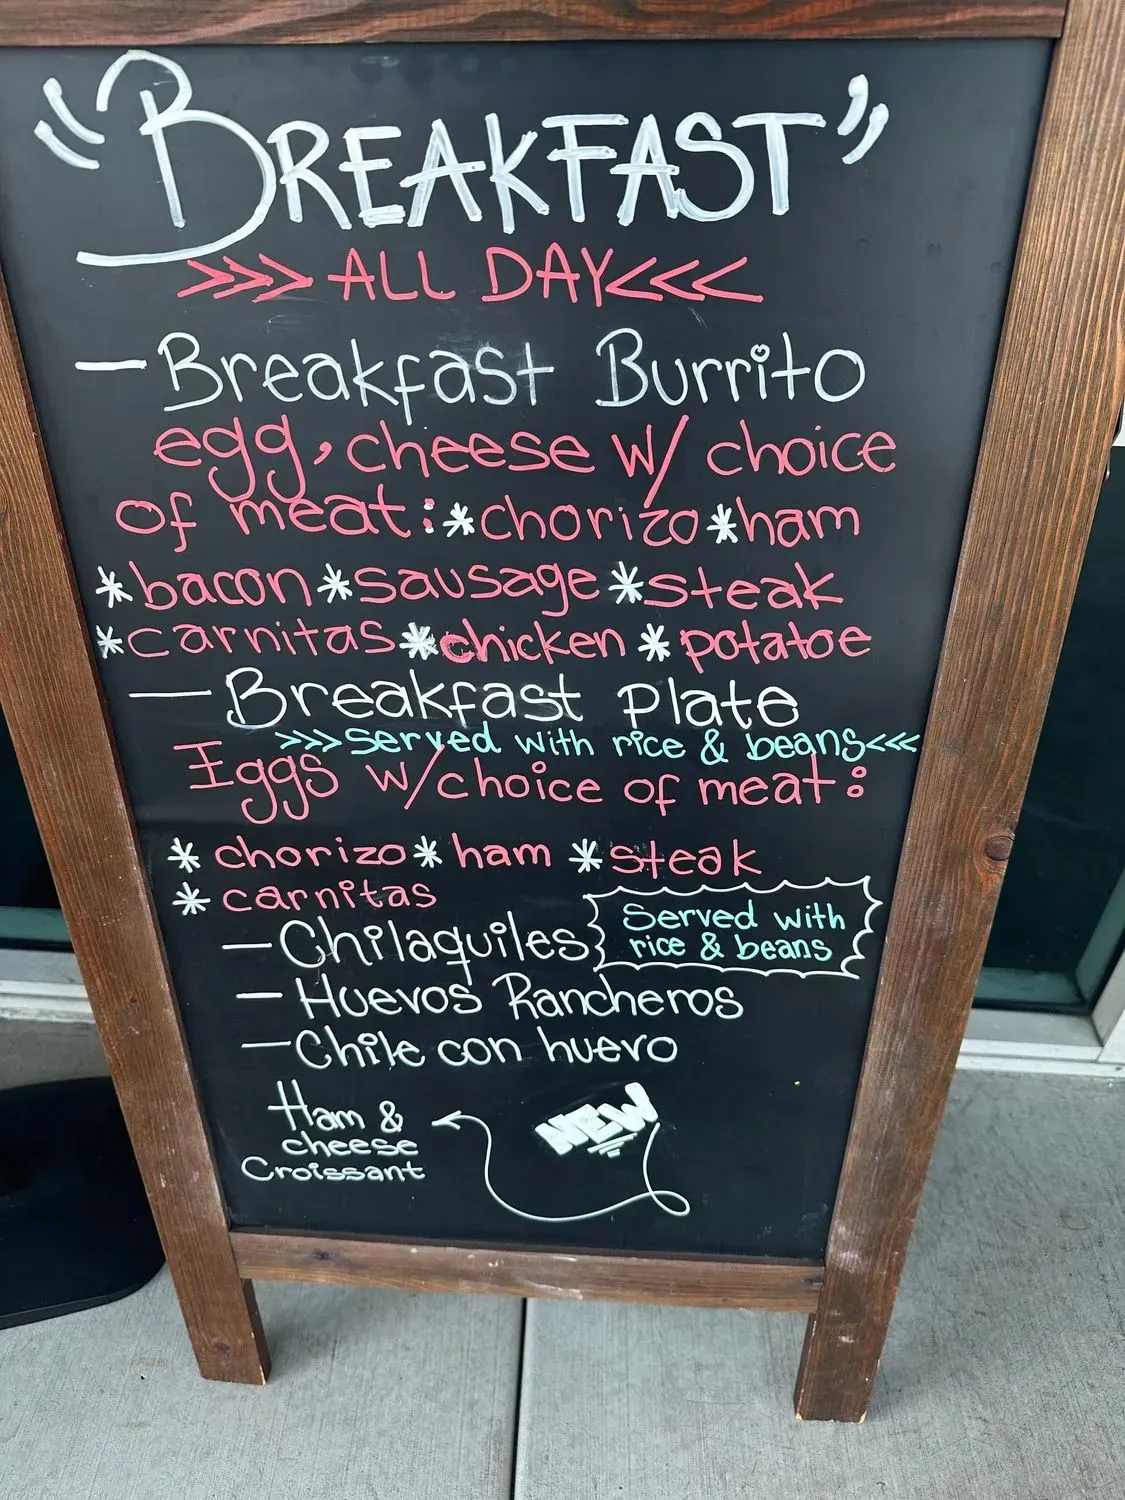 "BREAKFAST"
>>> ALL DAY <<<
— Breakfast Burrito
egg, cheese w/ choice
of meat: *chorizo *ham
*bacon *sausage *steak
*carnitas *chicken *potatoe
— Breakfast Plate
>>> Served with rice & beans <<<
Eggs w/choice of meat:
* chorizo * ham * steak
* carnitas
— Chilaquiles
Served with
rice & beans
— Huevos Rancheros
— Chile con huevo
Ham &
cheese
Croissant
NEW